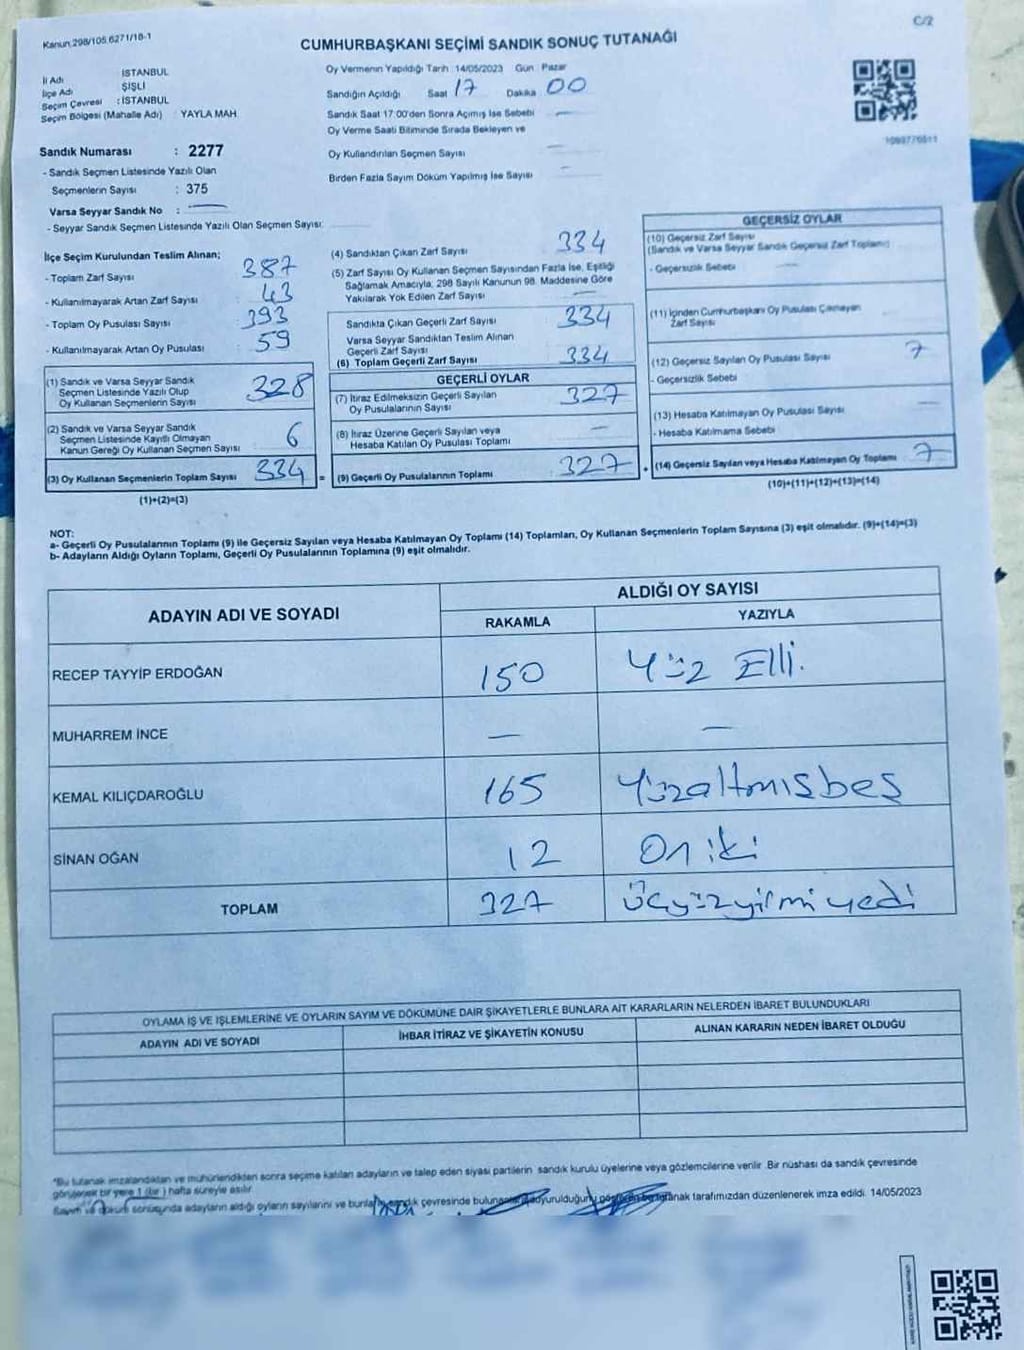 C/2
Kanun:298/105,6271/18-1
CUMHURBAŞKANI SEÇİMİ SANDIK SONUÇ TUTANAĞI
İl Adı : İSTANBUL
İlçe Adı : ŞİŞLİ
Seçim Çevresi : İSTANBUL
Seçim Bölgesi (Mahalle Adı) : YAYLA MAH
Sandık Numarası : 2277
- Sandık Seçmen Listesinde Yazılı Olan
Seçmenlerin Sayısı : 375
Varsa Seyyar Sandık No : —
- Seyyar Sandık Seçmen Listesinde Yazılı Olan Seçmen Sayısı:
Oy Vermenin Yapıldığı Tarih :14/05/2023 Gün : Pazar
Sandığın Açıldığı Saat 17 Dakika 00
Sandık Saat 17:00'den Sonra Açımış İse Sebebi —
Oy Verme Saati Bitiminde Sırada Bekleyen ve
Oy Kullandırılan Seçmen Sayısı —
Birden Fazla Sayım Döküm Yapılmış İse Sayısı —
1093770511
İlçe Seçim Kurulundan Teslim Alınan;
- Toplam Zarf Sayısı : 387
- Kullanılmayarak Artan Zarf Sayısı : 43
- Toplam Oy Pusulası Sayısı : 393
- Kullanılmayarak Artan Oy Pusulası : 59
(1) Sandık ve Varsa Seyyar Sandık
Seçmen Listesinde Yazılı Olup
Oy Kullanan Seçmenlerin Sayısı 328
(2) Sandık ve Varsa Seyyar Sandık
Seçmen Listesinde Kayıtlı Olmayan
Kanun Gereği Oy Kullanan Seçmen Sayısı 6
(3) Oy Kullanan Seçmenlerin Toplam Sayısı 334
(1)+(2)=(3)
(4) Sandıktan Çıkan Zarf Sayısı 334
(5) Zarf Sayısı Oy Kullanan Seçmen Sayısından Fazla İse, Eşitliği
Sağlamak Amacıyla; 298 Sayılı Kanunun 98. Maddesine Göre
Yakılarak Yok Edilen Zarf Sayısı —
Sandıkta Çıkan Geçerli Zarf Sayısı 334
Varsa Seyyar Sandıktan Teslim Alınan
Geçerli Zarf Sayısı
(6) Toplam Geçerli Zarf Sayısı 334
GEÇERLİ OYLAR
(7) İtiraz Edilmeksizin Geçerli Sayılan
Oy Pusulalarının Sayısı 327
(8) İtiraz Üzerine Geçerli Sayılan veya
Hesaba Katılan Oy Pusulası Toplamı —
= (9) Geçerli Oy Pusulalarının Toplamı 327
GEÇERSİZ OYLAR
(10) Geçersiz Zarf Sayısı
(Sandık ve Varsa Seyyar Sandık Geçersiz Zarf Toplamı)
- Geçersizlik Sebebi —
(11) İçinden Cumhurbaşkanı Oy Pusulası Çıkmayan
Zarf Sayısı
(12) Geçersiz Sayılan Oy Pusulası Sayısı 7
- Geçersizlik Sebebi
(13) Hesaba Katılmayan Oy Pusulası Sayısı —
- Hesaba Katılmama Sebebi
+ (14) Geçersiz Sayılan veya Hesaba Katılmayan Oy Toplamı 7
(10)+(11)+(12)+(13)=(14)
NOT:
a- Geçerli Oy Pusulalarının Toplamı (9) ile Geçersiz Sayılan veya Hesaba Katılmayan Oy Toplamı (14) Toplamları, Oy Kullanan Seçmenlerin Toplam Sayısına (3) eşit olmalıdır. (9)+(14)=(3)
b- Adayların Aldığı Oyların Toplamı, Geçerli Oy Pusulalarının Toplamına (9) eşit olmalıdır.
ADAYIN ADI VE SOYADI ALDIĞI OY SAYISI
RAKAMLA YAZIYLA
RECEP TAYYİP ERDOĞAN 150 Yüz Elli.
MUHARREM İNCE — —
KEMAL KILIÇDAROĞLU 165 Yüzaltmışbeş
SİNAN OĞAN 12 On iki
TOPLAM 327 Üçyüzyirmi yedi
OYLAMA İŞ VE İŞLEMLERİNE VE OYLARIN SAYIM VE DÖKÜMÜNE DAİR ŞİKAYETLERLE BUNLARA AİT KARARLARIN NELERDEN İBARET BULUNDUKLARI
ADAYIN ADI VE SOYADI İHBAR İTİRAZ VE ŞİKAYETİN KONUSU ALINAN KARARIN NEDEN İBARET OLDUĞU
*Bu tutanak imzalandıktan ve mühürlendikten sonra seçime katılan adayların ve talep eden siyasi partilerin sandık kurulu üyelerine veya gözlemcilerine verilir. Bir nüshası da sandık çevresinde
görülecek bir yere 1 (bir) hafta süreyle asılır.
Sayım ve döküm sonucunda adayların aldığı oyların sayılarını ve bunların sandık çevresinde tarafımızdan düzenlenerek imza edildi. 14/05/2023